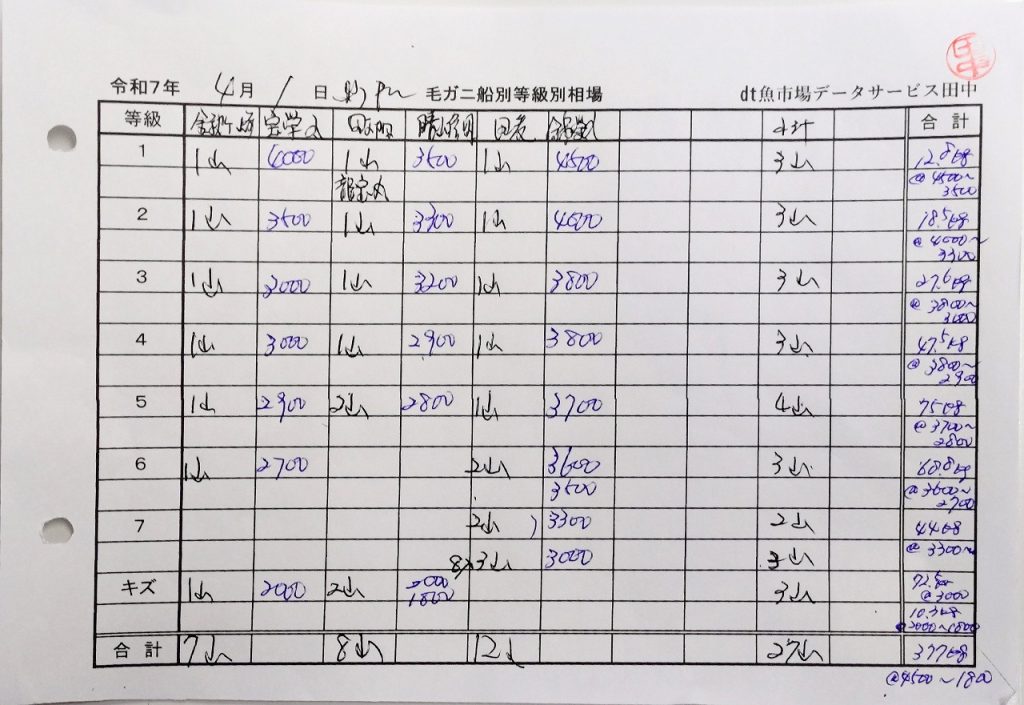 令和7年 4月 1日 毛ガニ船別等級別相場 dt魚市場データサービス田中
等級 宝栄丸 小計 合計
1 1山 4000 1山 3500 1山 4500 3山 12.8kg
龍宝丸 @4500~3500
2 1山 3500 1山 3300 1山 4000 3山 18.5kg
@4000~3300
3 1山 3000 1山 3200 1山 3800 3山 27.6kg
@3800~3000
4 1山 3000 1山 2900 1山 3800 3山 47.5kg
@3800~2900
5 1山 2900 2山 2800 1山 3700 4山 75kg
@3700~2800
6 1山 2700 2山 3600 3山 68.8kg
3500 @3600~2700
7 2山 3300 2山 44kg
8 3山 3000 3山 @3300~
キズ 1山 2000 2山 2000 3山 72.5kg
1800 @3000
10.3kg
@2000~1800
合計 7山 8山 12山 27山 377kg
@4500~1800